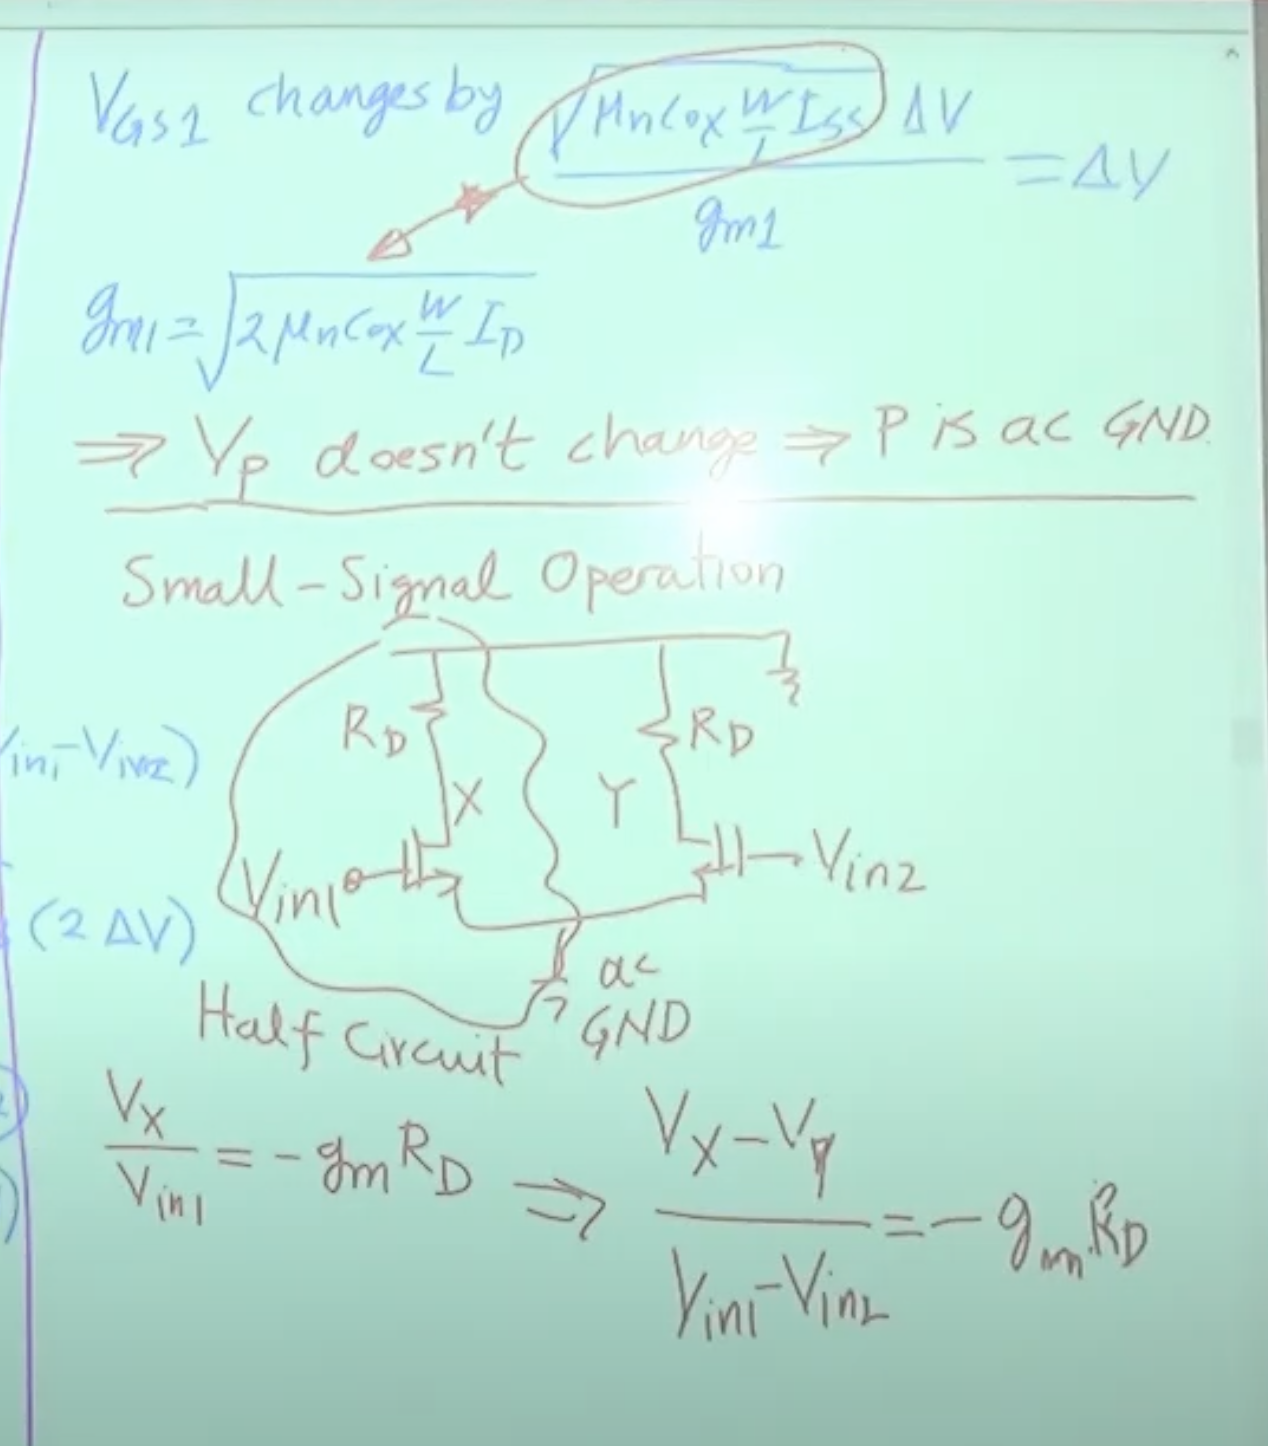 VGS1 changes by √(μnCox W/L ISS) ΔV / gm1 = ΔV
gm1 = √(2 μnCox W/L ID)
⇒ VP doesn't change ⇒ P is ac GND.
Small-Signal Operation
RD
RD
in1-Vin2)
X
Y
Vin1
Vin2
(2 ΔV)
ac
GND
Half Circuit
VX / Vin1 = - gm RD ⇒ VX - VY / Vin1 - Vin2 = - gm RD